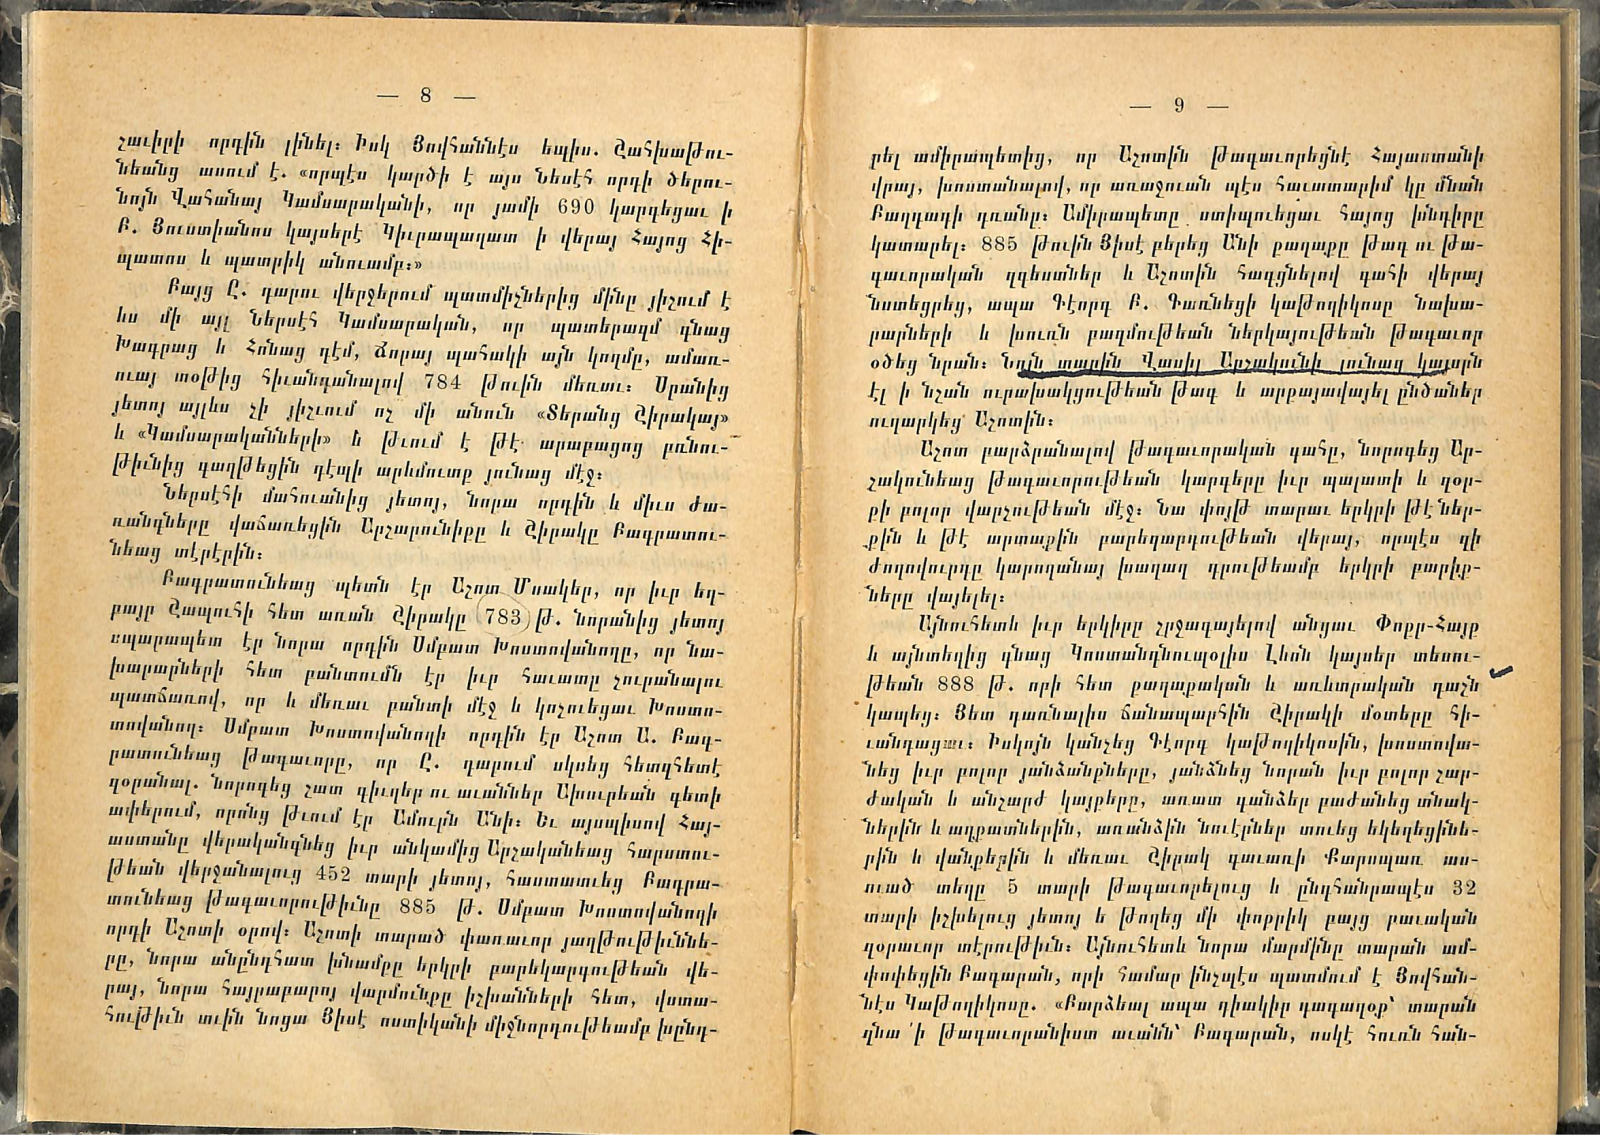 — 8 —
շաւիրի որդին լինել։ Իսկ Յովհաննէս եպիս. Շահխաթու-
նեանց ասում է. «որպէս կարծի է այս Նեսէհ որդի ծերու-
նոյն Վահանայ Կամսարականի, որ յամի 690 կարգեցաւ ի
Բ. Յուստիանոս կայսերէ Կիւրապաղատ ի վերայ Հայոց Հի-
պատոս և պատրիկ անուամբ։»
Բայց Ը. դարու վերջերում պատմիչներից մինը յիշում է
ևս մի այլ Ներսէհ Կամսարական, որ պատերազմ գնաց
Խազրաց և Հոնաց դէմ, Ճորայ պահակի այն կողմը, ամառ-
ուայ տօթից հիւանդանալով 784 թուին մեռաւ։ Սրանից
յետոյ այլևս չի յիշւում ոչ մի անուն «Տերանց Շիրակայ»
և «Կամսարականների» և թւում է թէ արաբացոց բռնու-
թիւնից գաղթեցին դէպի արևմուտք յունաց մէջ։
Ներսէհի մահուանից յետոյ, նորա որդին և միւս ժա-
ռանգները վաճառեցին Արշարունիքը և Շիրակը Բագրատու-
նեաց տէրէրին։
Բագրատունեաց պետն էր Աշոտ Մսակեր, որ իւր եղ-
բայր Շապուհի հետ առան Շիրակը 783 թ. նորանից յետոյ
սպարապետ էր նորա որդին Սմբատ Խոստովանողը, որ նա-
խարարների հետ բանտումն էր իւր հաւատը չուրանալու
պատճառով, որ և մեռաւ բանտի մէջ և կոչուեցաւ Խոստո-
տովանող։ Սմբատ Խոստովանողի որդին էր Աշոտ Ա. Բագ-
րատունեաց թագաւորը, որ Ը. դարում սկսեց հետզհետէ
զօրանալ. նորոգեց շատ գիւղեր ու աւաններ Ախուրեան գետի
ափերում, որոնց թւում էր Ամուրն Անի։ Եւ այսպիսով Հայ-
աստանը վերականգնեց իւր անկամից Արշականեաց հարստու-
թեան վերջանալուց 452 տարի յետոյ, հաստատւեց Բագրա-
տունեաց թագաւորութիւնը 885 թ. Սմբատ Խոստովանողի
որդի Աշոտի օրով։ Աշոտի տարած փառաւոր յաղթութիւննե-
րը, նորա անընդհատ խնամքը երկրի բարեկարգութեան վե-
րայ, նորա հայրաբարոյ վարմունքը իշխանների հետ, վստա-
հութիւն տւին նոցա Յիսէ ոստիկանի միջնորդութեամբ խընդ-
— 9 —
րել ամիրապետից, որ Աշոտին թագաւորեցնէ Հայաստանի
վրայ, խոստանալով, որ առաջուան պէս հաւատարիմ կը մնան
Բաղդադի դռանը։ Ամիրապետը ստիպուեցաւ հայոց խնդիրը
կատարել։ 885 թուին Յիսէ բերեց Անի քաղաքը թագ ու թա-
գաւորական զգեստներ և Աշոտին հագցնելով գահի վերայ
նստեցրեց, ապա Գէորգ Բ. Գառնեցի կաթողիկոսը նախա-
րարների և խուռն բազմութեան ներկայութեան թագաւոր
օծեց նրան։ Նոյն տարին Վասիլ Արշակունի յունաց կայսրն
էլ ի նշան ուրախակցութեան թագ և արքայավայել ընծաներ
ուղարկեց Աշոտին։
Աշոտ բարձրանալով թագաւորական գահը, նորոգեց Ար-
շակունեաց թագաւորութեան կարգերը իւր պալատի և զօր-
քի բոլոր վարչութեան մէջ։ Նա փոյթ տարաւ երկրի թէ ներ-
քին և թէ արտաքին բարեզարդութեան վերայ, որպէս զի
ժողովուրդը կարողանայ խաղաղ դրութեամբ երկրի բարիք-
ները վայելել։
Այնուհետև իւր երկիրը շրջագայելով անցաւ Փոքր-Հայք
և այնտեղից գնաց Կոստանդնուպօլիս Լևոն կայսեր տեսու-
թեան 888 թ. որի հետ քաղաքական և առևտրական դաշն
կապեց։ Յետ դառնալիս ճանապարհին Շիրակի մօտերը հի-
ւանդացաւ։ Իսկոյն կանչեց Գէորգ կաթողիկոսին, խոստովա-
նեց իւր բոլոր յանձանքները, յանձնեց նորան իւր բոլոր շար-
ժական և անշարժ կայքերը, առատ գանձեր բաժանեց տնակ-
ներին և աղքատներին, առանձին նուէրներ տուեց եկեղեցինե-
րին և վանքերին և մեռաւ Շիրակ գաւառի Քարսպառ աս-
ուած տեղը 5 տարի թագաւորելուց և ընդհանրապէս 32
տարի իշխելուց յետոյ և թողեց մի փոքրիկ բայց բաւական
զօրաւոր տէրութիւն։ Այնուհետև նորա մարմինը տարան ամ-
փոփեցին Բագարան, որի համար ինչպէս պատմում է Յովհան-
նէս Կաթողիկոսը. «Բարձեալ ապա դիակիր գագաղօք՝ տարան
զնա ՛ի թագաւորանիստ աւանն՝ Բագարան, ոսկէ հուռն հան-